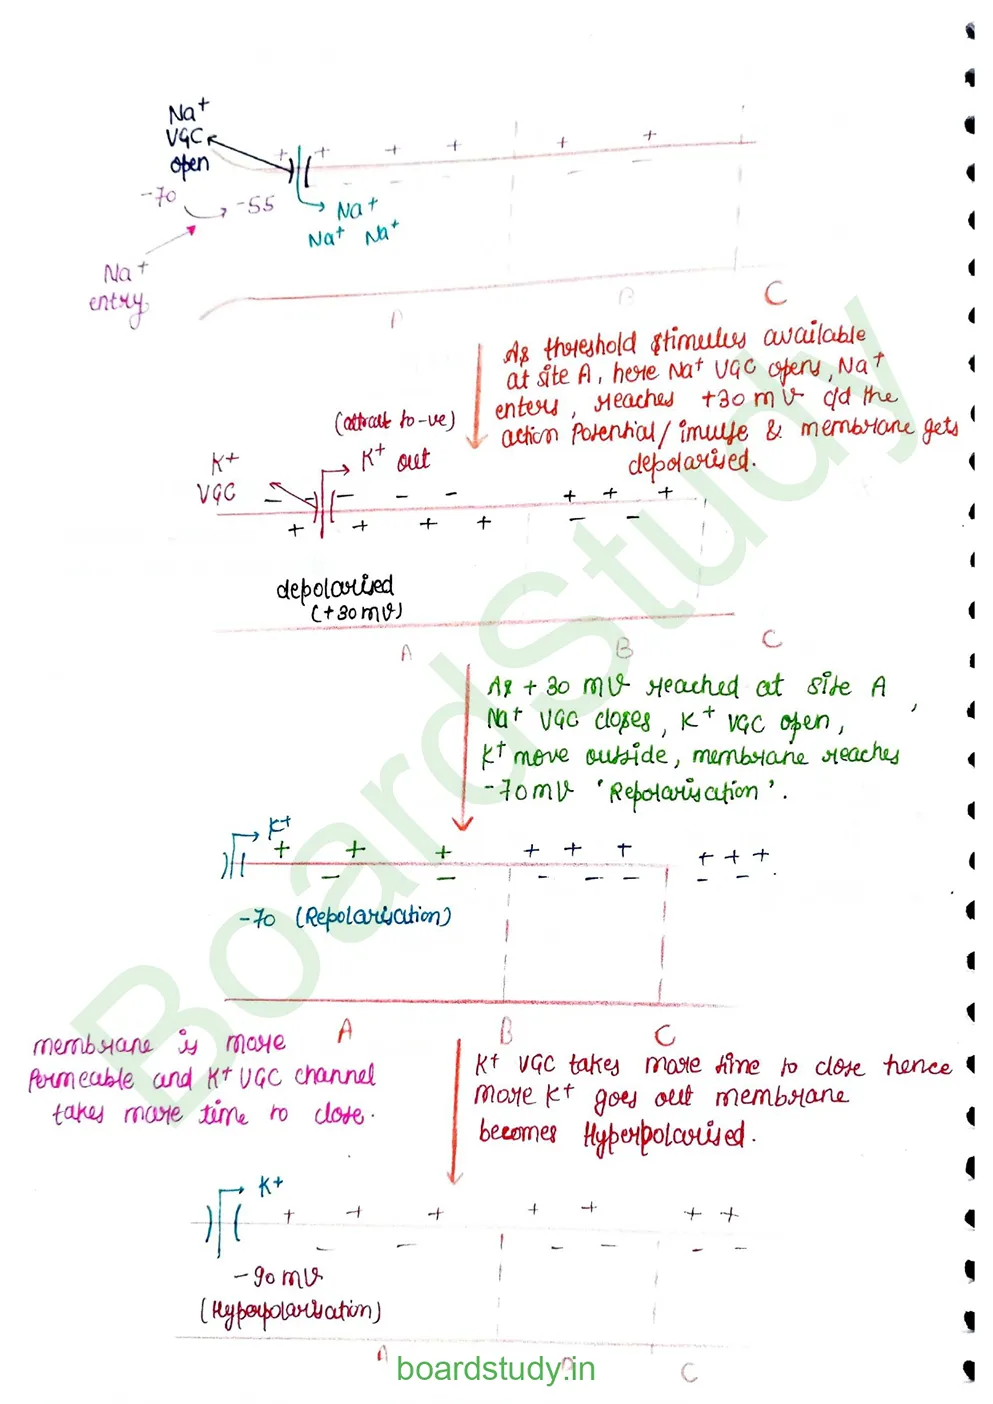 Na+
VGC
open
+ + + + + +
- - - - -
-70 → -55
Na+
Na+ Na+
Na+
entry
A B C
As threshold stimulus available
at site A, here Na+ VGC opens, Na+
enters, reaches +30 mV c/d the
action Potential/ imulse & membrane gets
depolarised.
(attract to -ve)
K+ out
K+
VGC
- - - - - + + +
+ + + + - -
depolarised
(+30mV)
A B C
As +30 mV reached at site A,
Na+ VGC closes, K+ VGC open,
K+ move outside, membrane reaches
-70mV 'Repolarisation'.
K+
+ + + + + + + + +
- - - - - - -
-70 (Repolarisation)
A B C
membrane is more
Permeable and K+ VGC channel
takes more time to close.
K+ VGC takes more time to close hence
more K+ goes out membrane
becomes Hyperpolarised.
K+
+ + + + + + +
- - - - - -
-90mV
(Hyperpolarisation)
A B C
BoardStudy
boardstudy.in